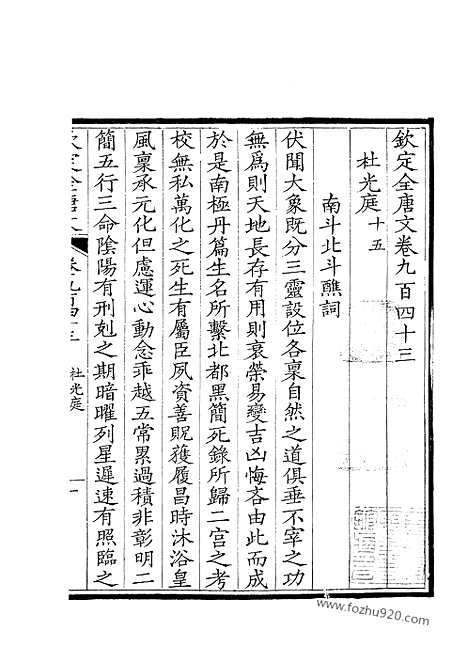 欽定全唐文卷九百四十三
杜光庭十五
南斗北斗醮詞
伏聞大象既分三靈設位各稟自然之道俱垂不宰之功
無爲則天地長存有用則衰榮易變吉凶悔吝由此而成
於是南極丹篇生名所繫北都黑簡死錄所歸二宮之考
校無私萬化之死生有屬臣夙資善貺獲履昌時沐浴皇
風稟承元化但慮運心動念乖越五常累過積非彰明二
簡五行三命陰陽有刑剋之期暗曜列星遲速有照臨之
欽定全唐文 卷九百四十三 杜光庭 一
www.fozhu920.com